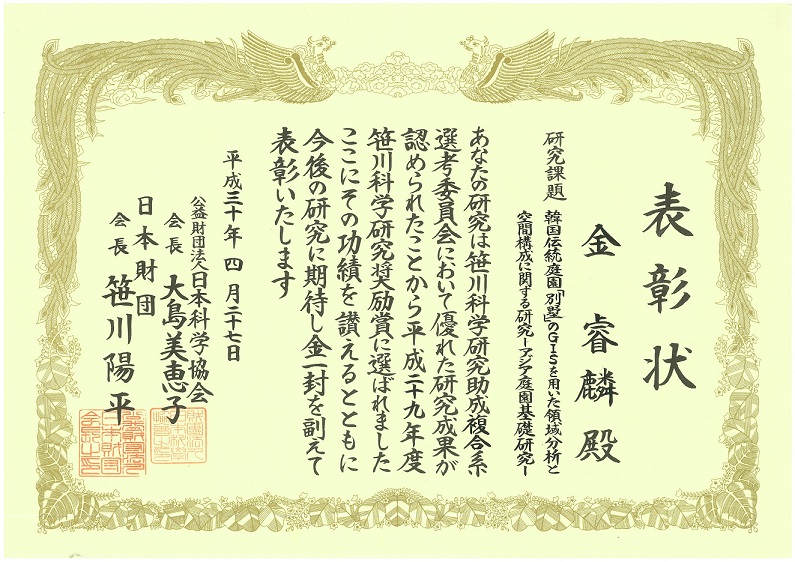 表彰状
金睿麟殿
研究課題 韓国伝統庭園「別墅」のGISを用いた領域分析と
空間構成に関する研究ーアジア庭園基礎研究ー
あなたの研究は笹川科学研究助成複合系
選考委員会において優れた研究成果が
認められたことから平成二十九年度
笹川科学研究奨励賞に選ばれました
ここにその功績を讃えるとともに
今後の研究に期待し金一封を副えて
表彰いたします
平成三十年四月二十七日
公益財団法人日本科学協会
会長 大島美恵子
日本財団
会長 笹川陽平